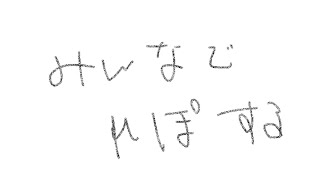 みんなで
μぽする